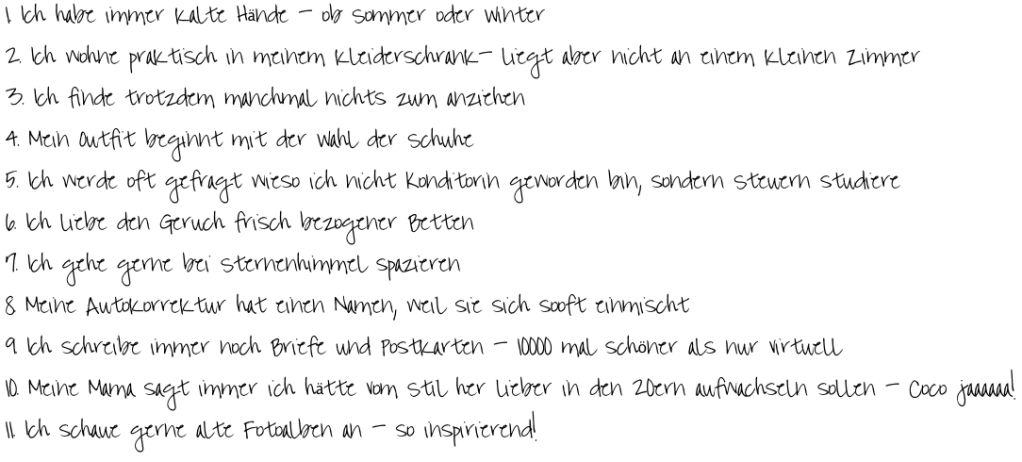 1. Ich habe immer kalte Hände - ob Sommer oder Winter
2. Ich wohne praktisch in meinem Kleiderschrank- liegt aber nicht an einem kleinen Zimmer
3. Ich finde trotzdem manchmal nichts zum anziehen
4. Mein Outfit beginnt mit der Wahl der Schuhe
5. Ich werde oft gefragt wieso ich nicht Konditorin geworden bin, sondern Steuern studiere
6. Ich liebe den Geruch frisch bezogener Betten
7. Ich gehe gerne bei Sternenhimmel spazieren
8 Meine Autokorrektur hat einen Namen, weil sie sich sooft einmischt
9. Ich schreibe immer noch Briefe und Postkarten - 10000 mal schöner als nur virtuell
10. Meine Mama sagt immer ich hätte vom Stil her lieber in den 20ern aufwachseln sollen - Coco jaaaaaa!
11. Ich schaue gerne alte Fotoalben an - so inspirierend!